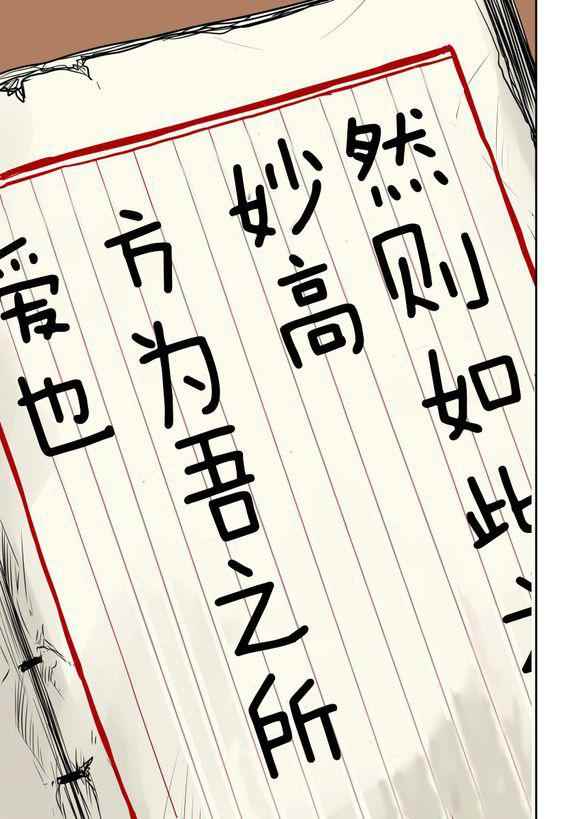 然则如此
妙高
方为吾之所
爱也